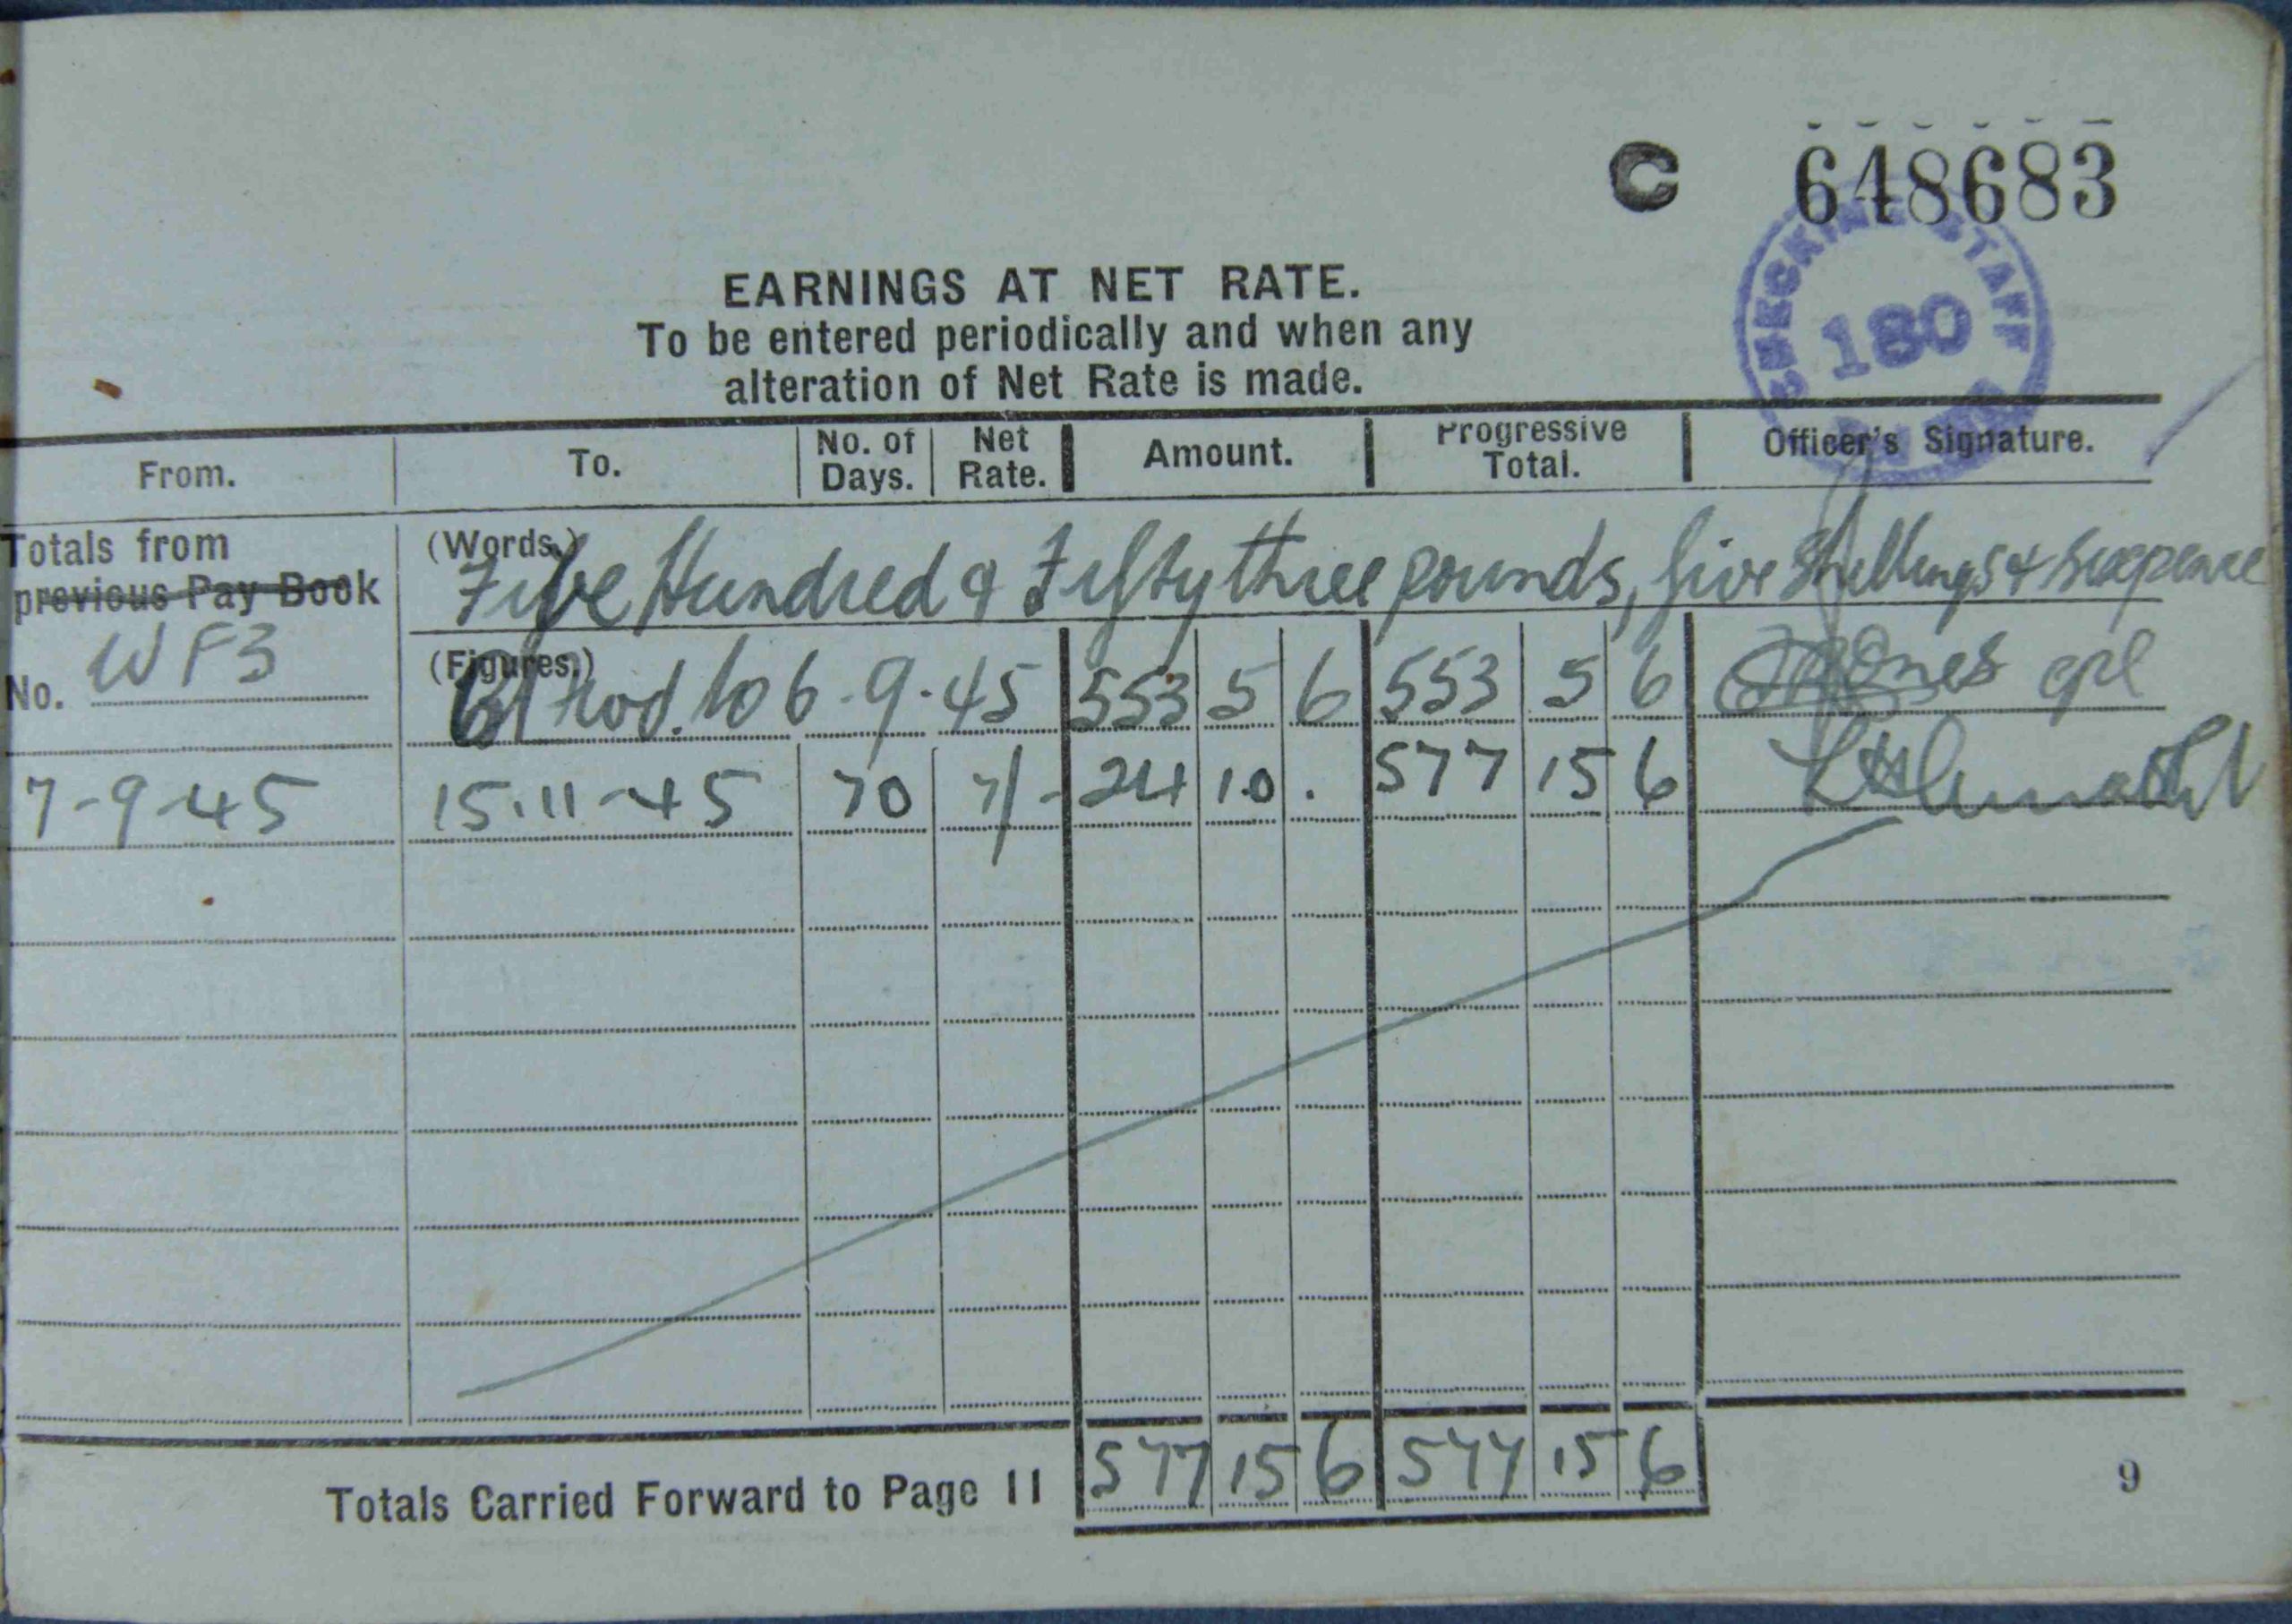 C 648683
CHECKING STAFF
180
EARNINGS AT NET RATE.
To be entered periodically and when any
alteration of Net Rate is made.
From. To. No. of Days. Net Rate. Amount. Progressive Total. Officer's Signature.
Totals from previous Pay Book
(Words.) Five Hundred & Fifty three pounds, five Shillings & sixpence
No. WF3 (Figures.) to 6-9-45 553 5 6 553 5 6 Jones cpl
7-9-45 15-11-45 70 7/- 24 10 . 577 15 6
Totals Carried Forward to Page 11 577 15 6 577 15 6
9